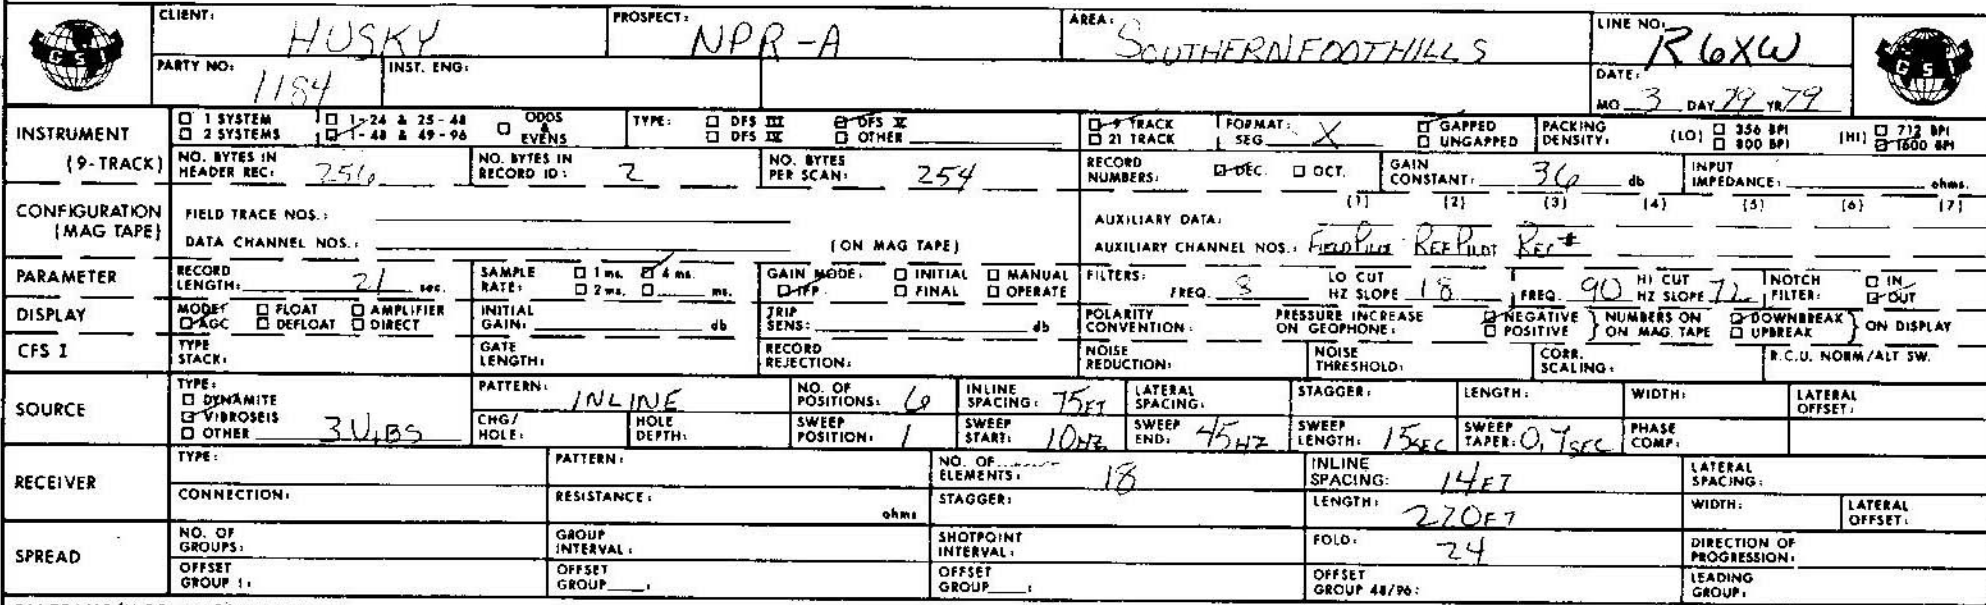 CLIENT: HUSKY PROSPECT: NPR-A AREA: SOUTHERN FOOTHILLS LINE NO: R6XW
GSI GSI
PARTY NO: 1184 INST. ENG: DATE:
MO 3 DAY 29 YR 79
INSTRUMENT 1 SYSTEM 1-24 & 25-48 ODDS & EVENS TYPE: DFS III DFS V 9 TRACK FORMAT: GAPPED PACKING DENSITY: (LO) 356 BPI (HI) 712 BPI
2 SYSTEMS 1-48 & 49-96 DFS IV OTHER 21 TRACK SEG X UNGAPPED 800 BPI 1600 BPI
(9-TRACK) NO. BYTES IN HEADER REC: 256 NO. BYTES IN RECORD ID: 2 NO. BYTES PER SCAN: 254 RECORD NUMBERS: DEC. OCT. GAIN CONSTANT: 36 db INPUT IMPEDANCE: ohms.
CONFIGURATION (MAG TAPE) FIELD TRACE NOS.: AUXILIARY DATA: (1) (2) (3) (4) (5) (6) (7)
DATA CHANNEL NOS.: (ON MAG TAPE) AUXILIARY CHANNEL NOS.: FIELD PILOT REF PILOT REC #
PARAMETER RECORD LENGTH: 21 sec. SAMPLE RATE: 1 ms. 4 ms. 2 ms. ms. GAIN MODE: INITIAL MANUAL IFP FINAL OPERATE FILTERS: FREQ. 8 LO CUT HZ SLOPE 18 FREQ. 90 HI CUT HZ SLOPE 72 NOTCH FILTER: IN OUT
DISPLAY MODE: FLOAT AMPLIFIER AGC DEFLOAT DIRECT INITIAL GAIN: db TRIP SENS: db POLARITY CONVENTION: PRESSURE INCREASE ON GEOPHONE: NEGATIVE POSITIVE NUMBERS ON ON MAG. TAPE DOWNBREAK UPBREAK ON DISPLAY
CFS I TYPE STACK: GATE LENGTH: RECORD REJECTION: NOISE REDUCTION: NOISE THRESHOLD: CORR. SCALING: R.C.U. NORM/ALT SW.
SOURCE TYPE: DYNAMITE PATTERN: INLINE NO. OF POSITIONS: 6 INLINE SPACING: 75FT LATERAL SPACING: STAGGER: LENGTH: WIDTH: LATERAL OFFSET:
VIBROSEIS OTHER 3 VIBS CHG/HOLE: HOLE DEPTH: SWEEP POSITION: 1 SWEEP START: 10HZ SWEEP END: 45HZ SWEEP LENGTH: 15SEC SWEEP TAPER: 0.7SEC PHASE COMP:
RECEIVER TYPE: PATTERN: NO. OF ELEMENTS: 18 INLINE SPACING: 14FT LATERAL SPACING:
CONNECTION: RESISTANCE: ohms STAGGER: LENGTH: 220FT WIDTH: LATERAL OFFSET:
SPREAD NO. OF GROUPS: GROUP INTERVAL: SHOTPOINT INTERVAL: FOLD: 24 DIRECTION OF PROGRESSION:
OFFSET GROUP 1: OFFSET GROUP : OFFSET GROUP : OFFSET GROUP 48/96: LEADING GROUP: